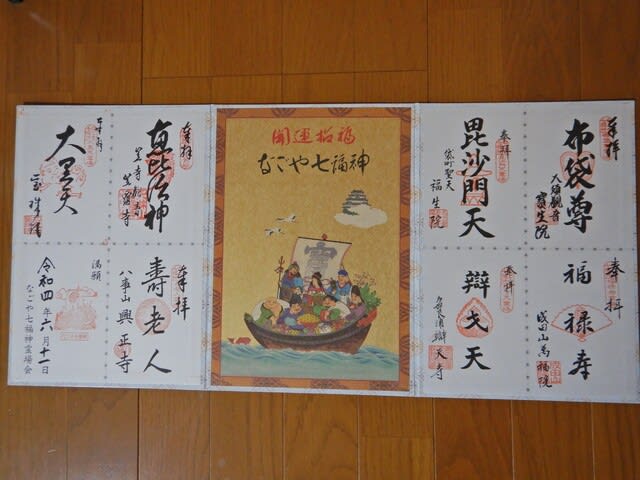 奉拝
布袋尊
大須観音
寳生院
奉拝
毘沙門天
袋町聖天
福生院
奉拝
福禄寿
成田山萬福院
奉拝
辯才天
辯天寺
開運招福
なごや七福神
寶
奉拝
恵比須神
笠寺観音
笠覆寺
大黒天
宝珠院
奉拝
壽老人
八事山興正寺
満願
令和四年六月十一日
なごや七福神霊場会